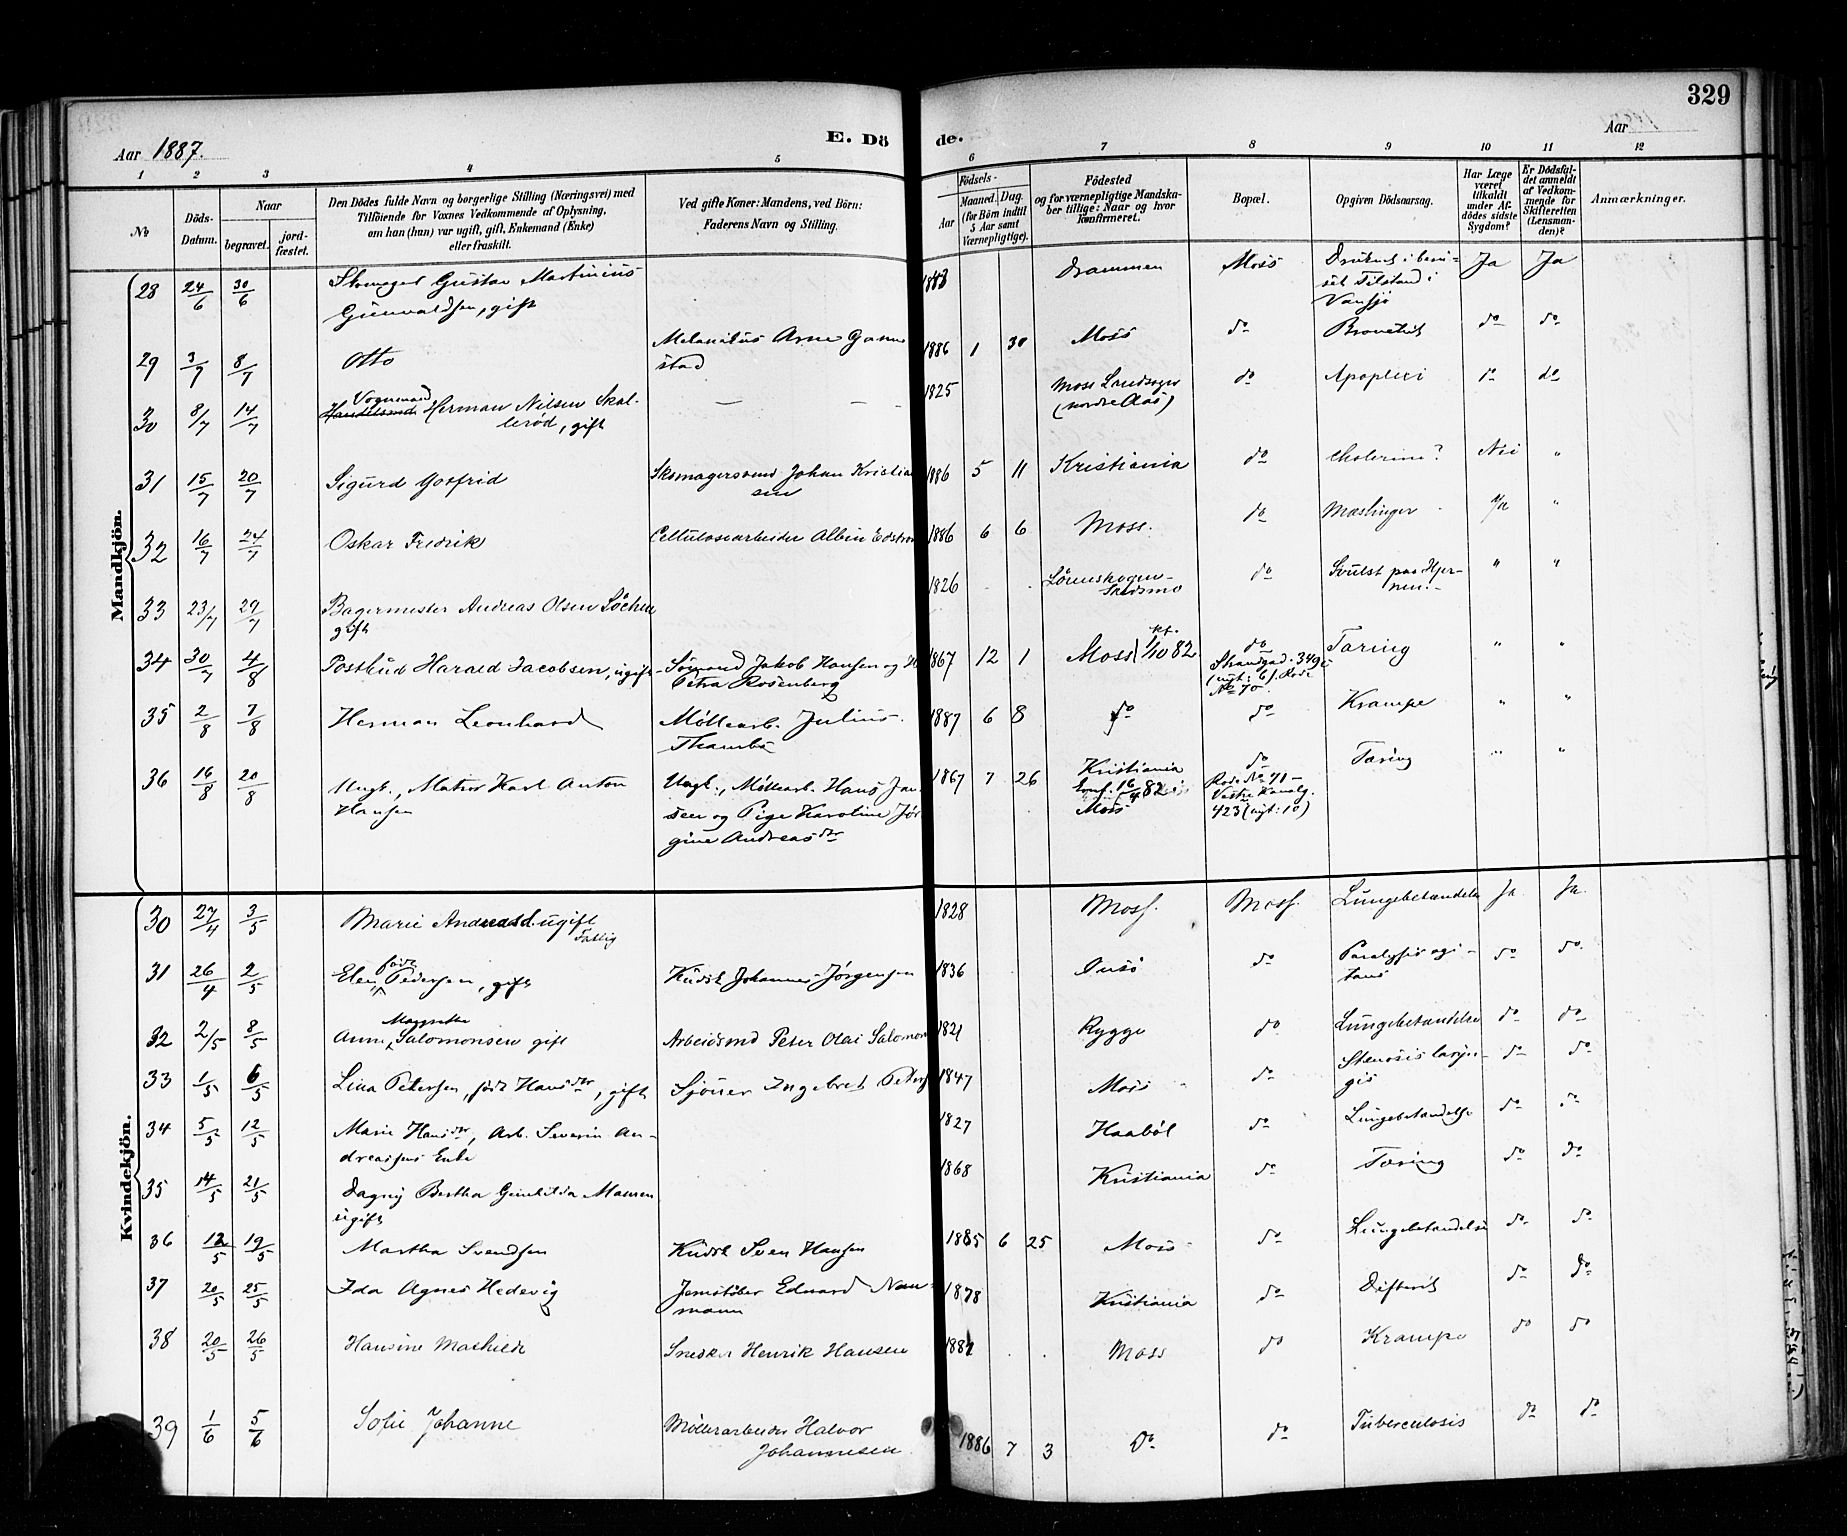 329
Aar 1887.
E. Dö de.
Aar
1 2 3 4 5 6 7 8 9 10 11 12
No
Döds-Datum.
Naar
begravet.
jord-fæstet.
Den Dödes fulde Navn og borgerlige Stilling (Næringsvei) med
Tilföiende for Voxnes Vedkommende af Oplysning,
om han (hun) var ugift, gift, Enkemand (Enke)
eller fraskilt.
Ved gifte Koner: Mandens, ved Börn:
Faderens Navn og Stilling.
Födsels-
Aar
Maaned. Dag.
(for Börn indtil
5 Aar samt
Værnepligtige).
Födested
og for værnepligtige Mandska-
ber tillige: Naar og hvor
konfirmeret.
Bopæl.
Opgiven Dödsaarsag.
Har Læge
været
tilkaldt
under Af-
dödes sidste
Sygdom?
Er Dödsfal-
det anmeldt
af Vedkom-
mende for
Skifteretten
(Lensman-
den)?
Anmærkninger.
Mandkjön.
28 24/6 30/6 Skomager Gustav Martinius Drammen Moss Druknet i beru- Ja Ja
Gunvaldsen, gift set Tilstand i
Vansjø
29 3/7 8/7 Otto 1886 1 30 Moss do do do
stad
30 8/7 14/7 Vognmand Herman Nilsen Skal- — — 1825 Moss Landsogn do Apoplexi do do
lerød, gift (nordre Aas)
31 15/7 20/7 Sigurd Gotfrid Skomagersvend Johan Kristian 1886 5 11 Kristiania do Cholerine? Nei "
sen
32 16/7 24/7 Oskar Fredrik Cellulosearbeider Albin Edstrøm 1886 6 6 Moss. do Mæslinger Ja "
33 23/7 29/7 Bagermester Andreas Olsen 1826 do Svulst paa Hjer- " "
gift Skedsmo nen.
34 30/7 4/8 Postbud Harald Jacobsen, ugift Sømand Jakob Hansen og 1867 12 1 Moss kf. 1/10 82 do Tæring " "
Petra Rosenberg Strandgad. 349
(nyt: 6) Rode
No 70.
35 2/8 7/8 Herman Leonhard Møllearb. Julius 1887 6 8 do do Krampe " "
36 16/8 20/8 Ungk., Matros Karl Anton Ungk., Møllearb. Hans Jan 1867 7 26 Kristiania do Tæring " "
Hansen sen og Pige Karoline Jør Konf. 16/4 82 i Rode No 71 -
gine Andreasdtr Moss Vestre Kanalg.
423 (nyt: 10)
Kvindekjön.
30 27/4 3/5 Marie Andreasd. ugift 1828 Moss. Moss. Lungebetændelse Ja. Ja.
Fattig
31 26/4 2/5 Elen født Pedersen, gift Kudsk Johannes Jørgensen 1836 Onsø do Paralysis agi- do do
tans
32 2/5 8/5 Anne Margrethe Salomonsen gift Arbeidsmd Peter Olai Salomon 1821 Rygge do Lungebetændelse do do
33 1/5 6/5 Lina Petersen, født Hansdtr, gift Sjøuer Ingebret Peters 1847 Moss do Stenosis laryn- do do
gis
34 5/5 12/5 Marie Hansdtr, Arb. Severin An- 1827 Haabøl do Lungebetændelse do do
dreassens Enke
35 14/5 21/5 Dagny Bertha Gunhilda 1868 Kristiania do Tæring do do
ugift
36 12/5 19/5 Martha Svendsen Kudsk Sven Hansen 1885 6 25 Moss do Lungebetændelse do do
37 20/5 25/5 Ida Agnes Hedevig Jernstøber Edvard Nau- 1878 Kristiania do Difterit do do
mann
38 20/5 26/5 Hansine Mathilde Snedker Henrik Hansen Moss do Krampe do do
39 1/6 5/6 Sofie Johanne Møllerarbeider Halvor 1886 7 3 Do do Tuberculosis do do
Johannesen